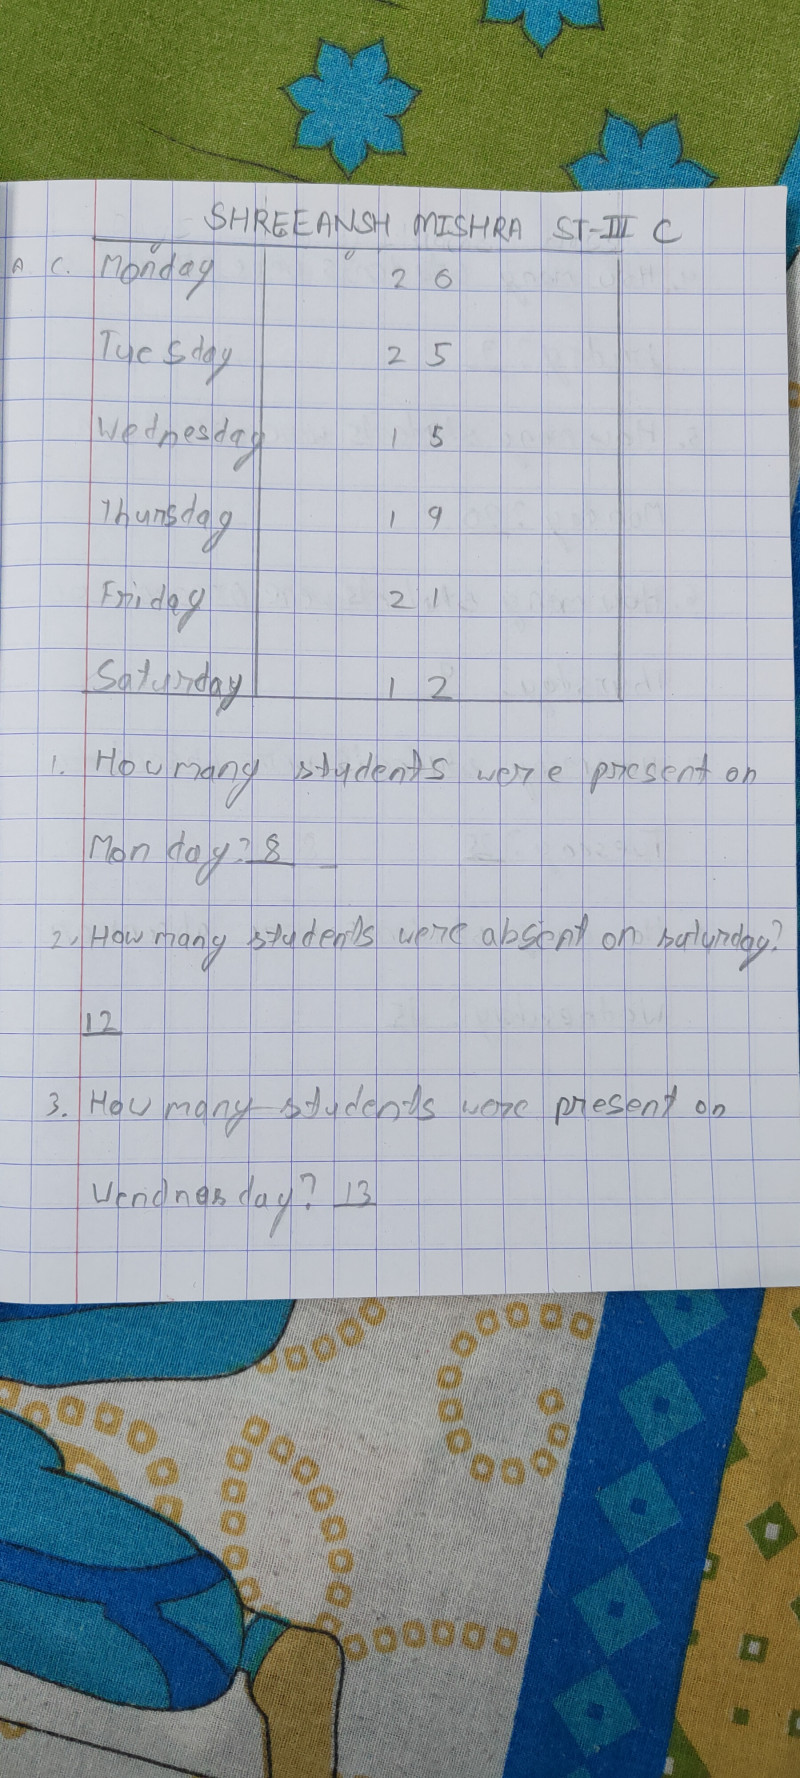 SHREEANSH MISHRA ST-III C
A C. Monday 26
Tuesday 25
Wednesday 15
Thursday 19
Friday 21
Saturday 12
1. How many students were present on
Monday? 8
2. How many students were absent on saturday?
12
3. How many students were present on
Wendnesday? 13